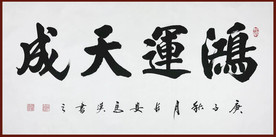 鴻運天成
庚子秋月於長安馬英書之